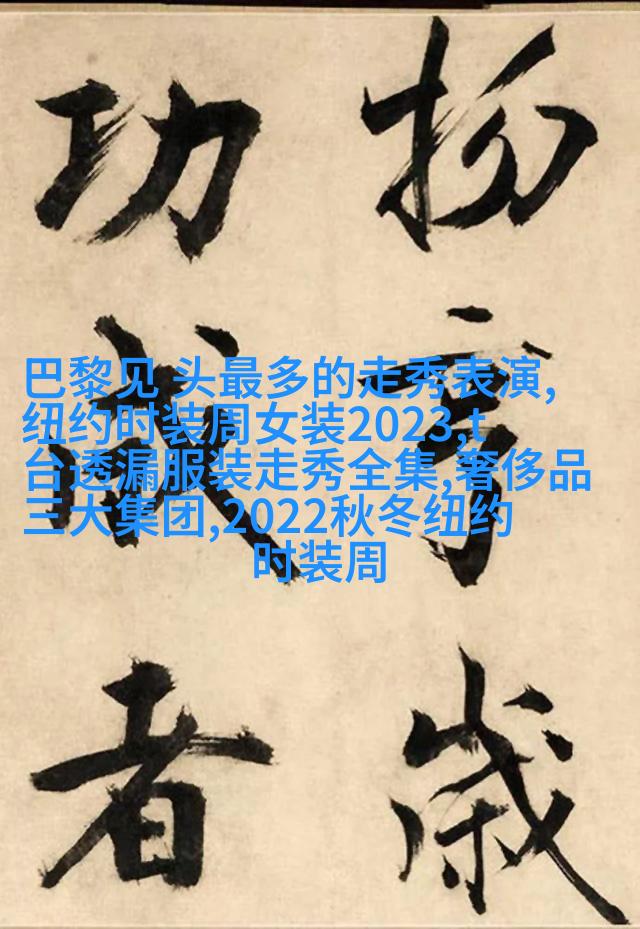 歲
功成者
巴黎见 头最多的走秀表演,
纽约时装周女装2023,t
台透漏服装走秀全集,奢侈品
三大集团,2022秋冬纽约
时装周